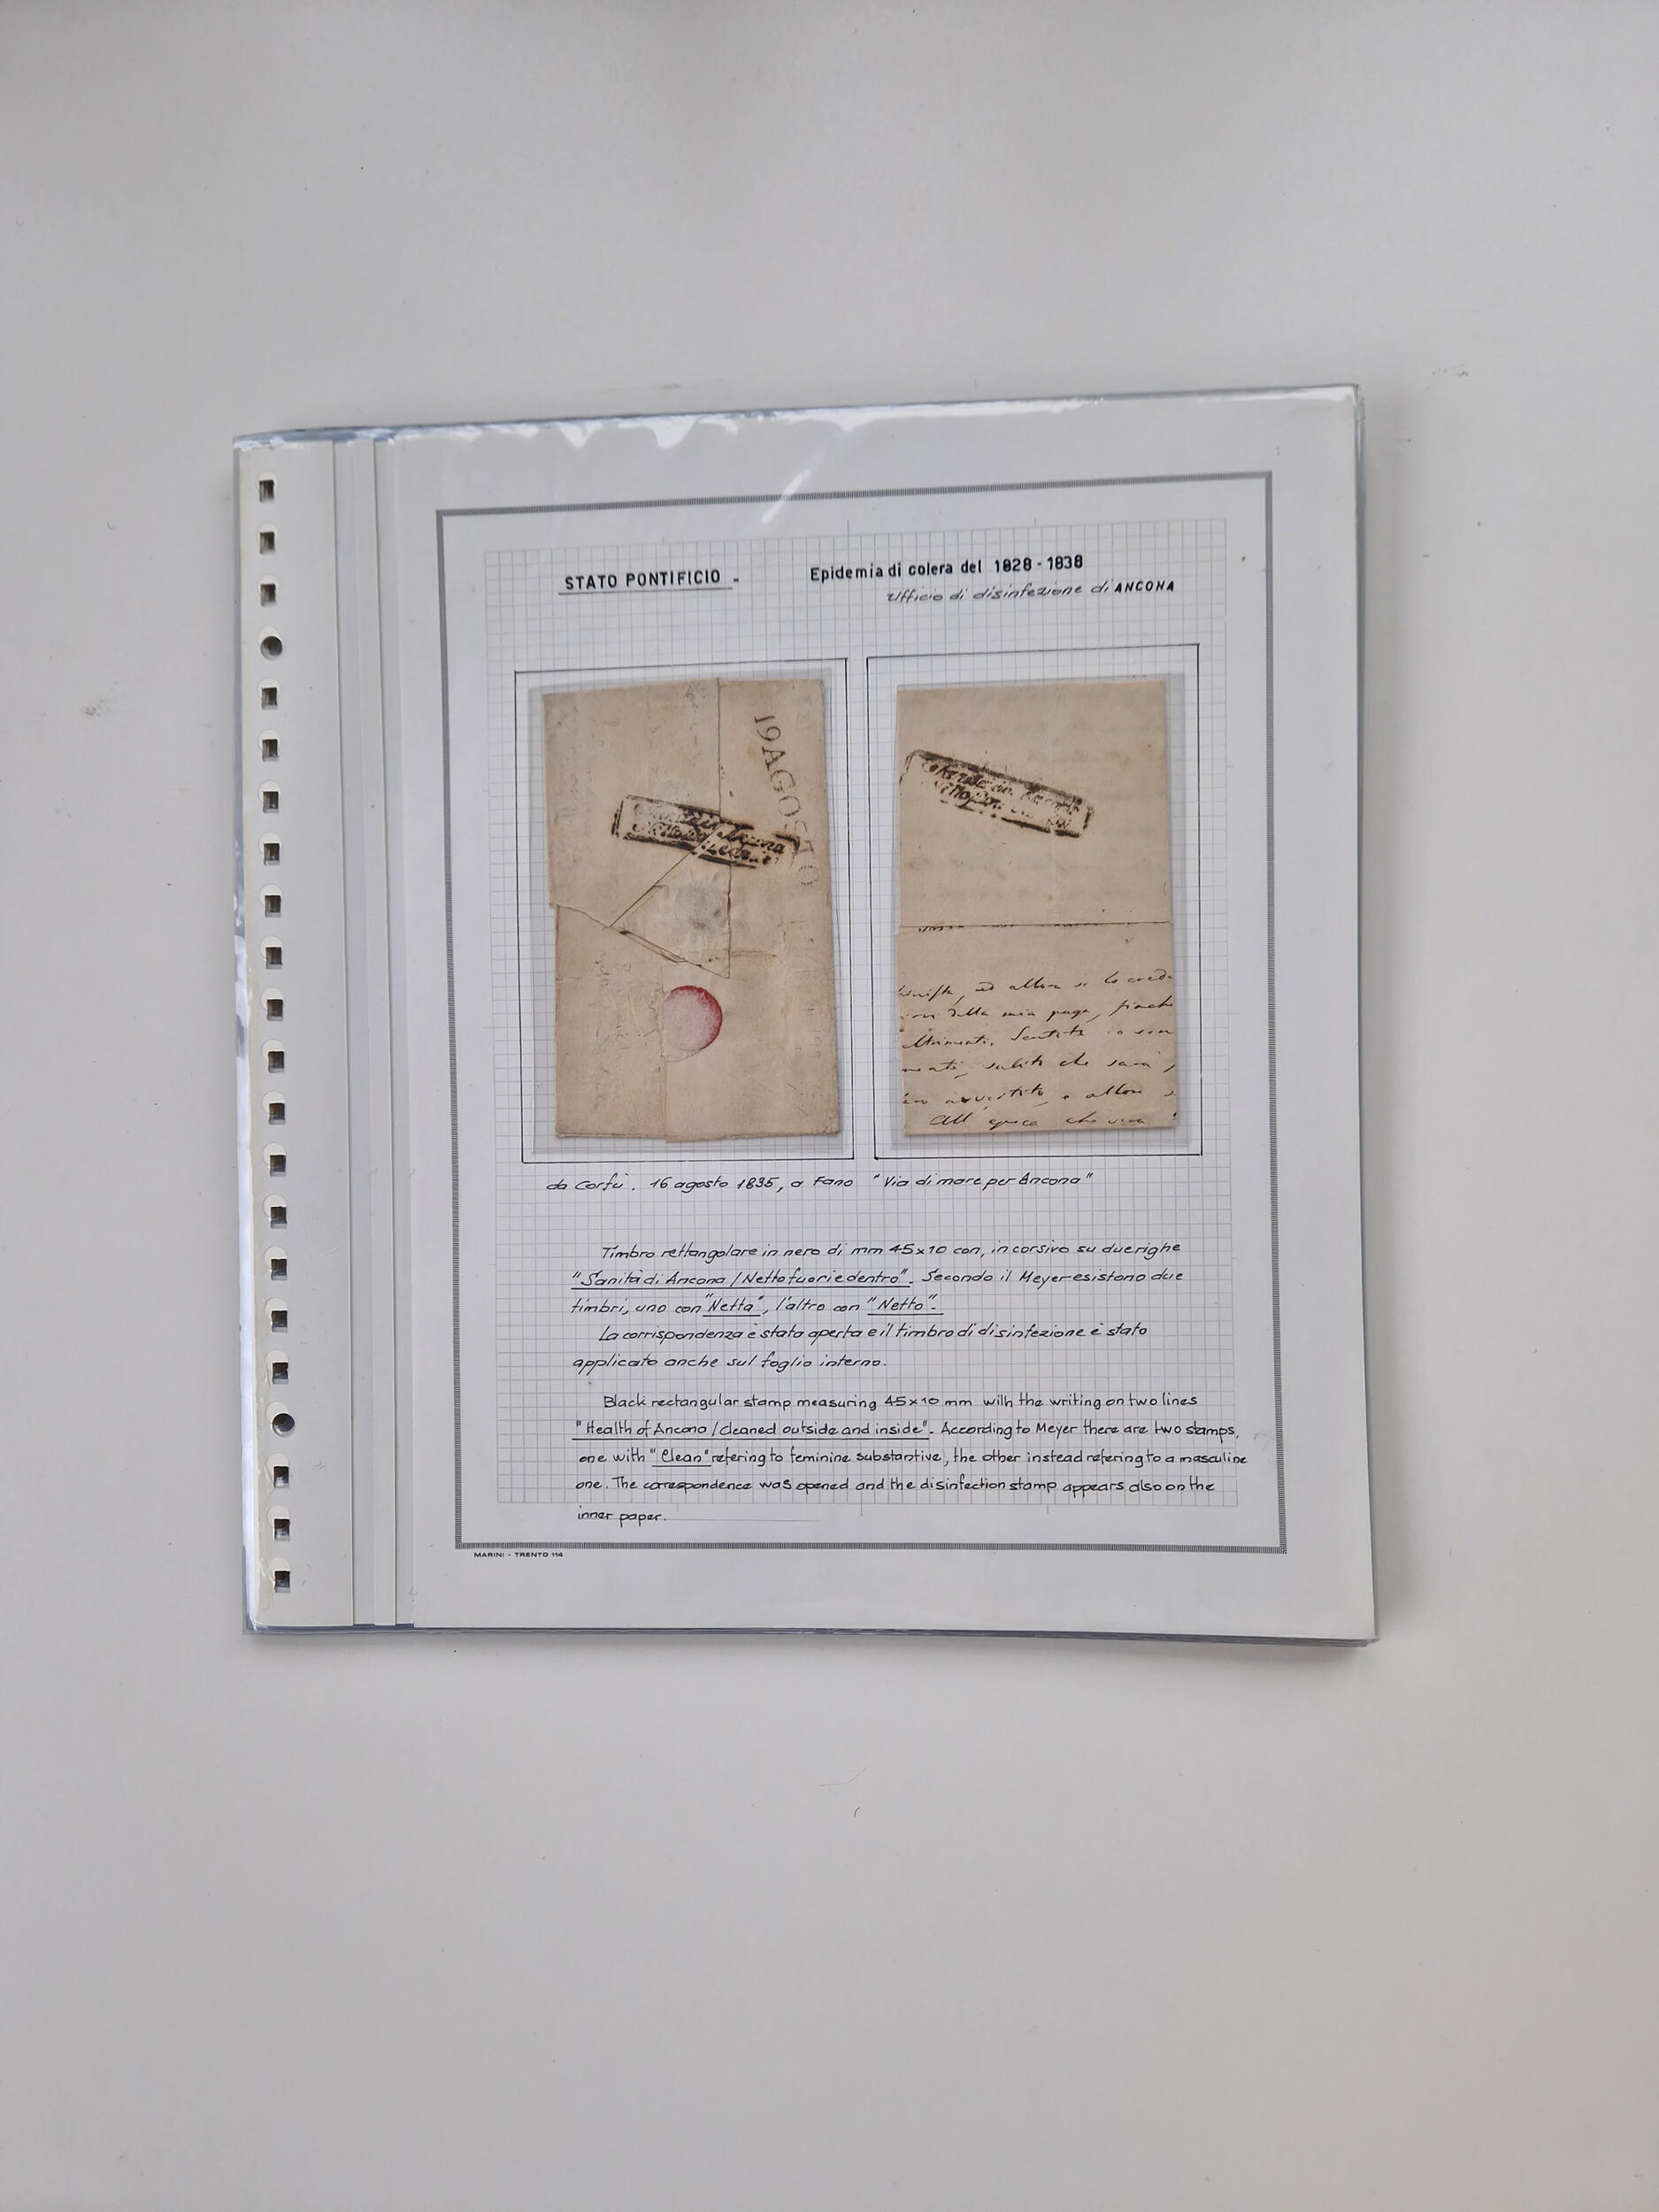 STATO PONTIFICIO -
Epidemia di colera del 1828 - 1838
Ufficio di disinfezione di ANCONA
19 AGOSTO
Ancona
ed allora si lo
della mia paga, finche
Sentite io son
subito che sarà
avvertito, e allora
All' epoca che
da Corfù. 16 agosto 1835, a Fano "Via di mare per Ancona"
Timbro rettangolare in nero di mm 45x10 con, in corsivo su due righe
"Sanità di Ancona / Netto fuori e dentro". Secondo il Meyer esistono due
timbri, uno con "Netta", l'altro con "Netto".
La corrispondenza è stata aperta e il timbro di disinfezione è stato
applicato anche sul foglio interno.
Black rectangular stamp measuring 45x10 mm with the writing on two lines
"Health of Ancona / cleaned outside and inside". According to Meyer there are two stamps,
one with "Clean" refering to feminine substantive, the other instead refering to a masculine
one. The correspondence was opened and the disinfection stamp appears also on the
inner paper.
MARINI - TRENTO 114